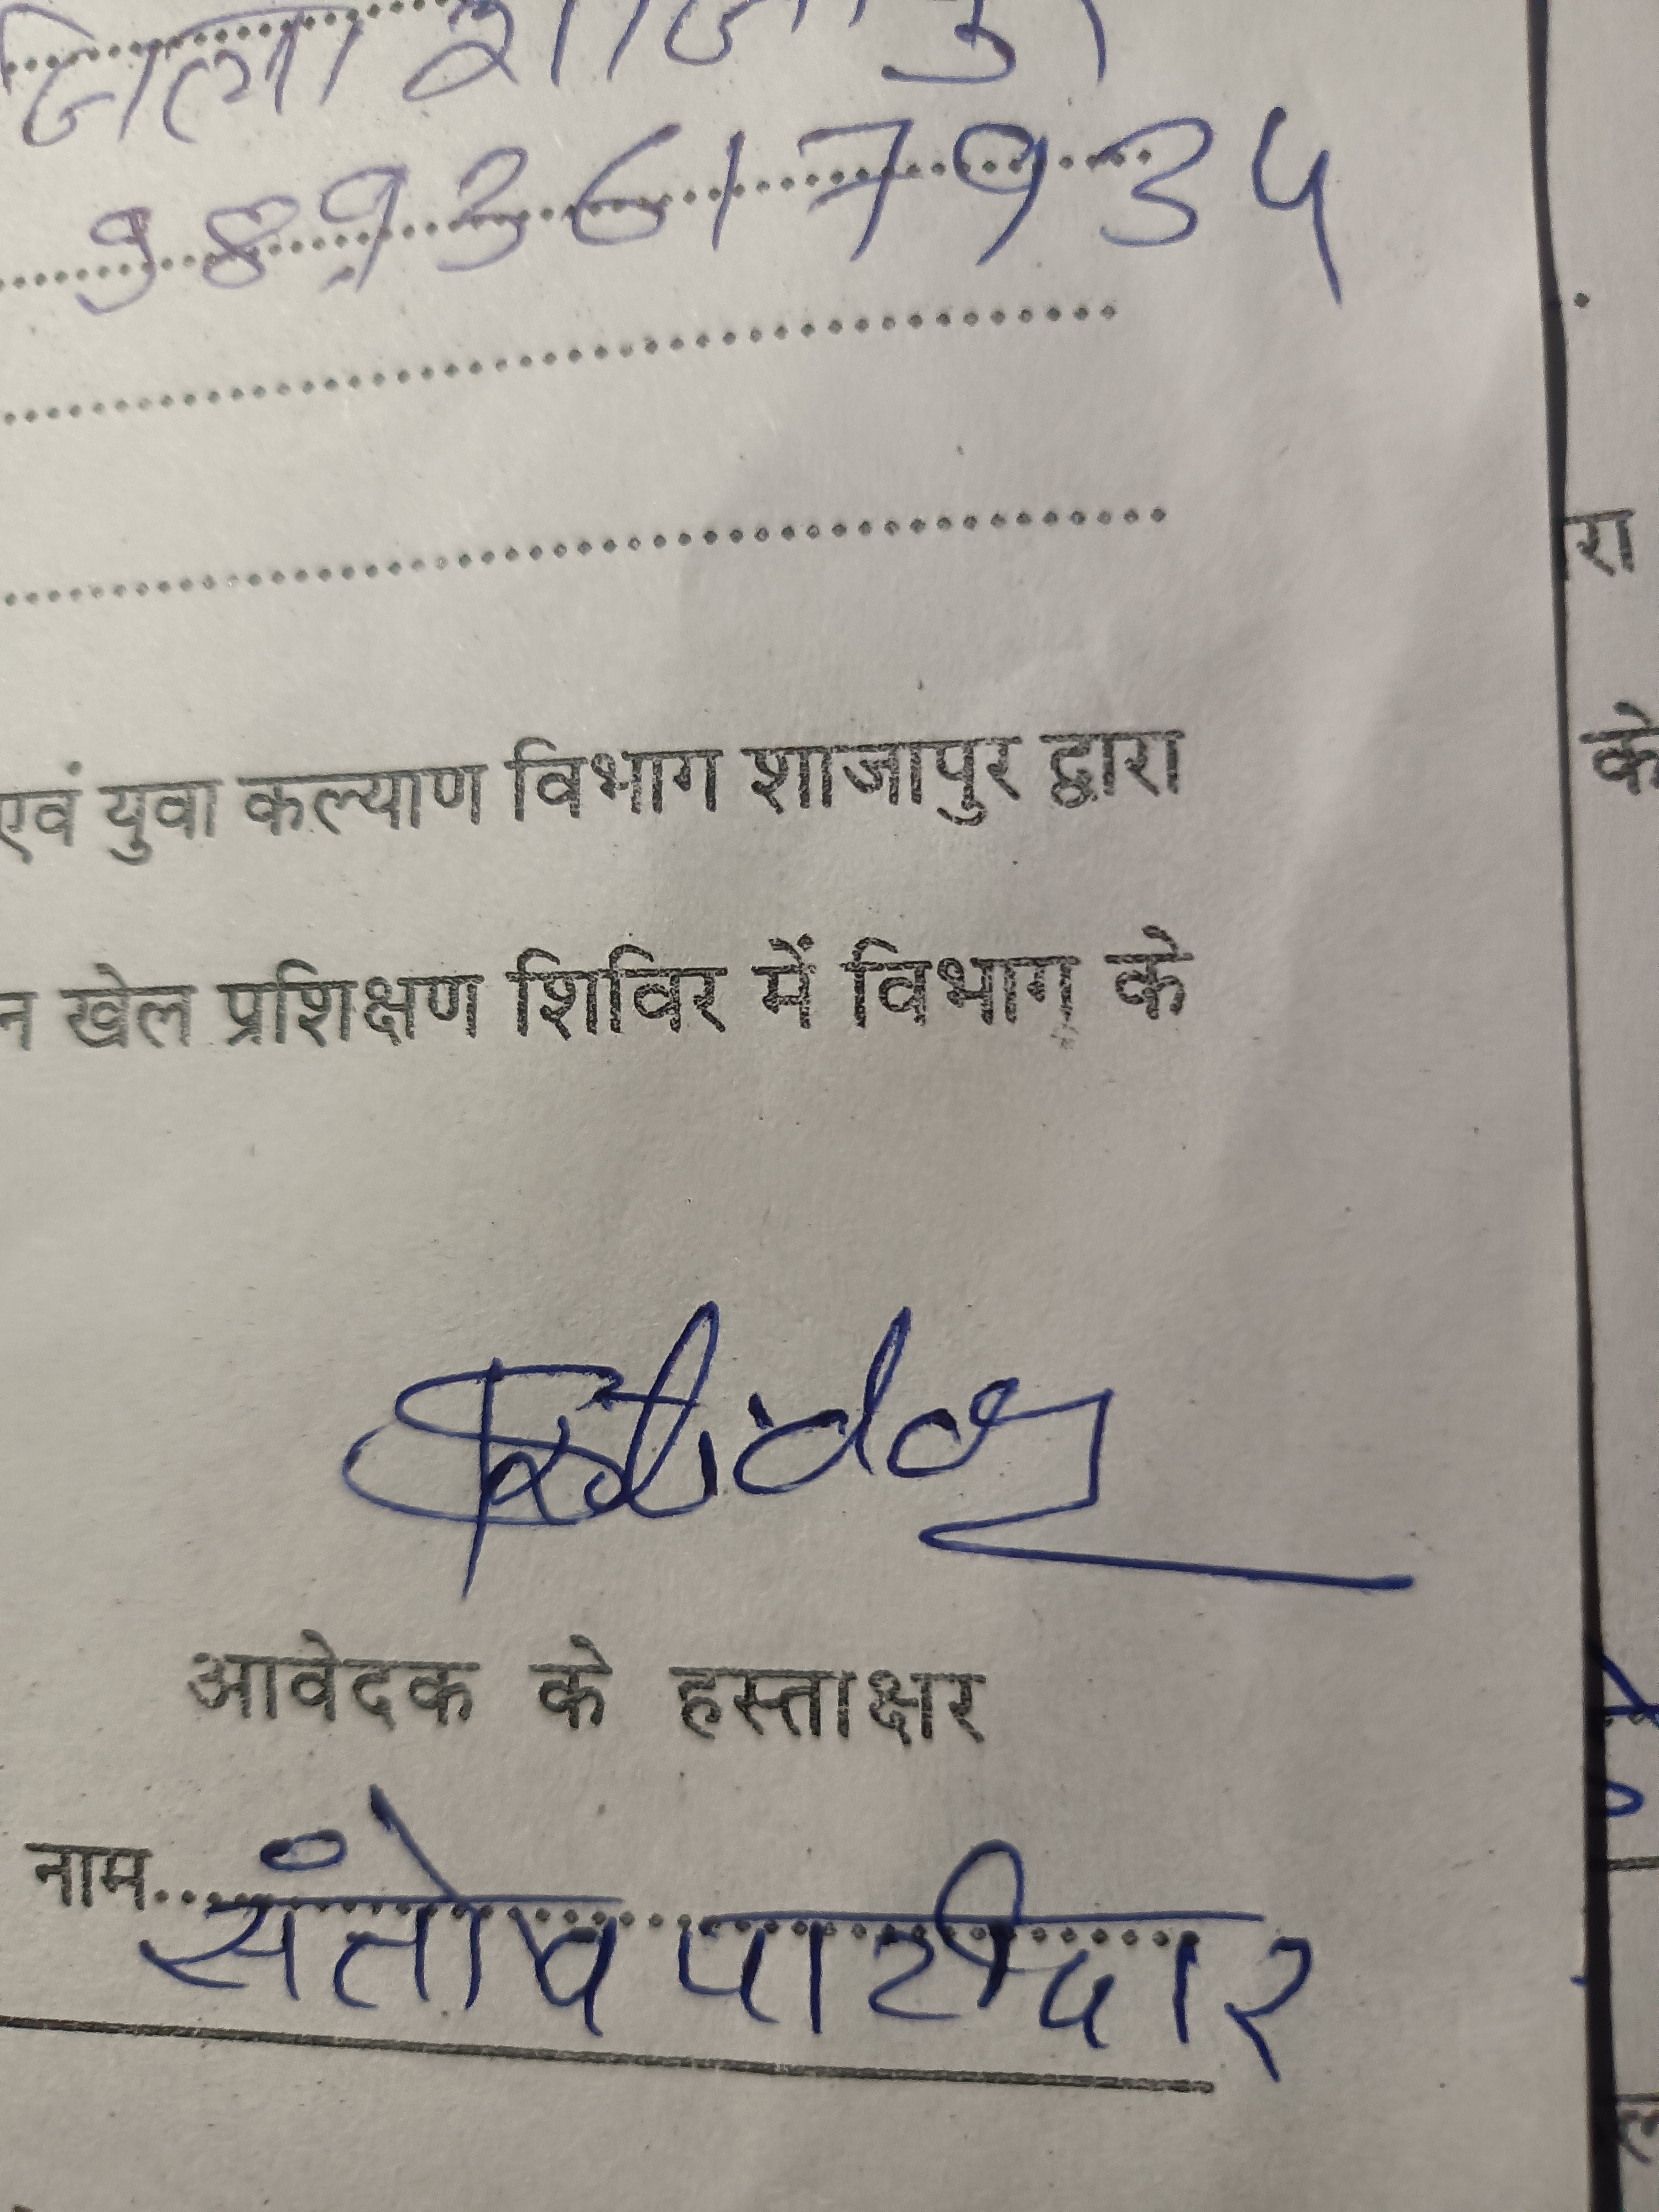 जिला शाजापुर
9893617934
एवं युवा कल्याण विभाग शाजापुर द्वारा
न खेल प्रशिक्षण शिविर में विभाग के
आवेदक के हस्ताक्षर
नाम.... संतोष पाटीदार
रा
के